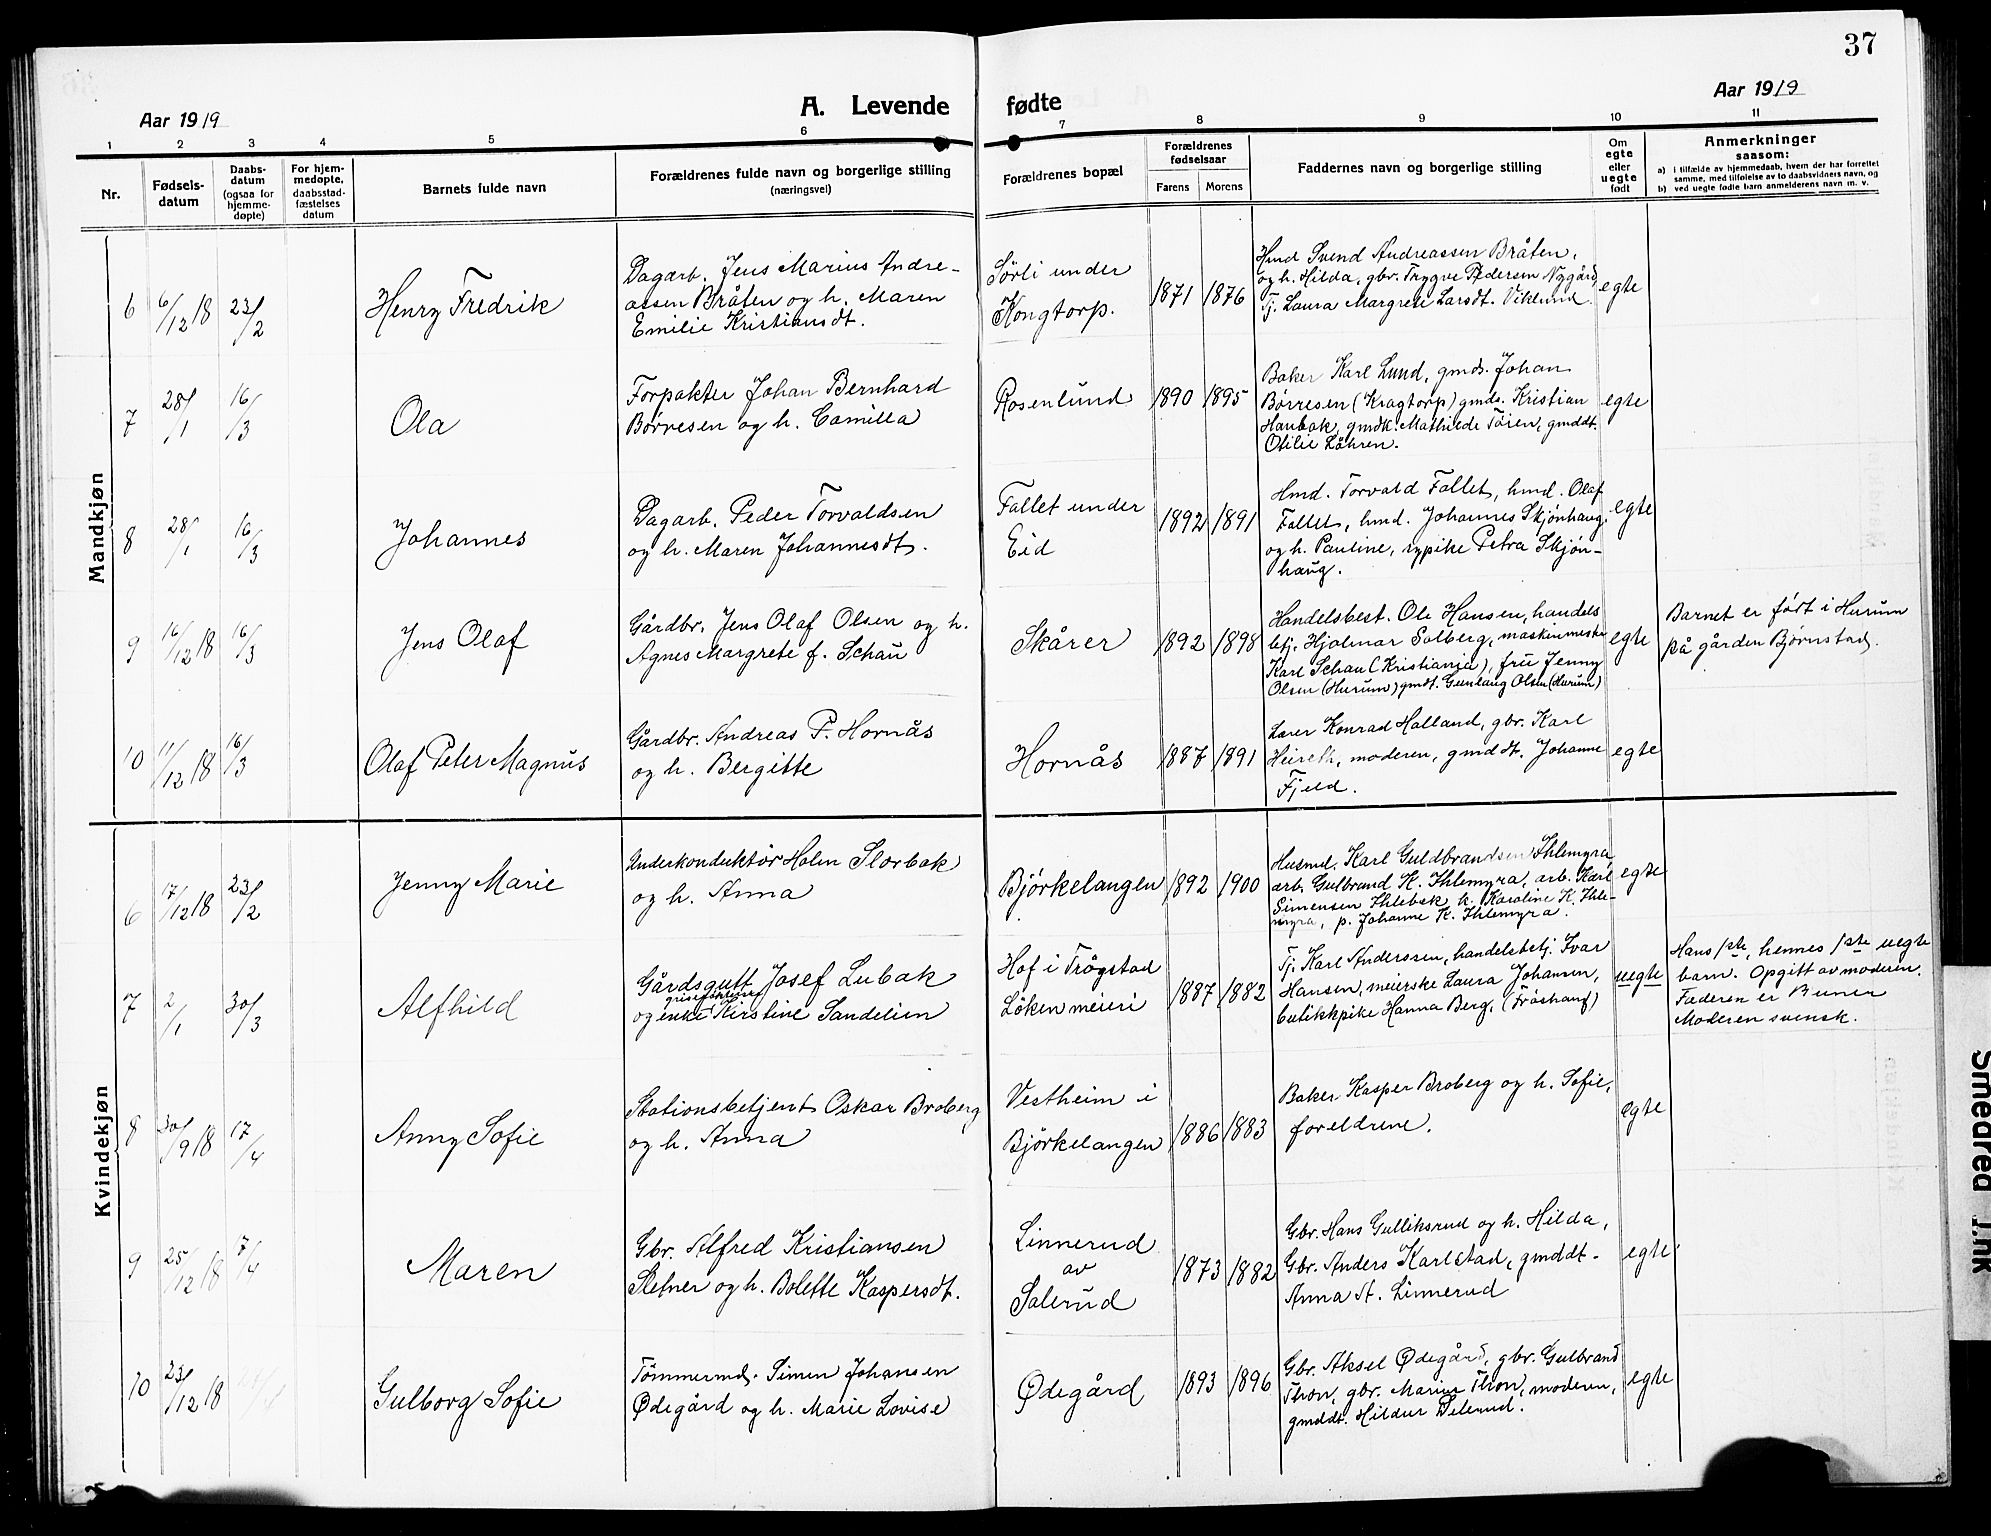 37
Aar 1919
A. Levende fødte
Aar 1919
1 2 3 4 5 6 7 8 9 10 11
Nr.
Fødsels-
datum
Daabs-
datum
(ogsaa for
hjemme-
døpte)
For hjem-
medøpte,
daabsstad-
fæstelses
datum
Barnets fulde navn
Forældrenes fulde navn og borgerlige stilling
(næringsvei)
Forældrenes bopæl
Forældrenes
fødselsaar
Farens Morens
Faddernes navn og borgerlige stilling
Om
egte
eller
uegte
født
Anmerkninger
saasom:
a) i tilfælde av hjemmedaab, hvem der har forrettet
samme, med tilføielse av to daabsvidners navn, og
b) ved uegte fødte barn anmelderens navn m. v.
Mandkjøn
6 6/12 18 23/2
Henry Fredrik
Dagarb. Jens Marius Andre-
assen Bråten og h. Maren
Emilie Kristiansdt.
Sörli under
Kongtorp.
1871 1876
Hmd Svend Andreassen Bråten,
og h. Hilda, gbr. Trygve Pedersen Nygård,
Tj. Laura Margrete Larsdt. Viklund.
egte
7 28/1 16/3
Ola
Forpakter Johan Bernhard
Börresen og h. Camilla
Rosenlund
1890 1895
Baker Karl Lund, gmds. Johan
Börresen (Kragtorp) gmds. Kristian
Haubak, gmdk. Mathilde Töien, gmddt.
Otilie Löhren.
egte
8 28/1 16/3
Johannes
Dagarb. Peder Torvaldsen
og h. Maren Johannesdt.
Fallet under
Eid
1892 1891
Hmd. Torvald Fallet, hmd. Olaf
Fallet, hmd. Johannes Skjönhaug,
og h. Pauline, sypike Petra Skjön-
haug.
egte
9 16/12 18 16/3
Jens Olaf
Gårdbr. Jens Olaf Olsen og h.
Agnes Margrete f. Schau
Skårer
1892 1898
Handelsbest. Ole Hansen, handels
betj. Hjalmar Solberg, maskinmester
Karl Schau (Kristiania), fru Jenny
Olsen (Hurum) gmdt. Gunlaug Olsen (Hurum)
egte
Barnet er födt i Hurum
på gården Björnstad.
10 11/12 18 16/3
Olaf Peter Magnus
Gårdbr. Andreas P. Hornås
og h. Bergitte
Hornås
1887 1891
Lærer Konrad Halland, gbr. Karl
Heireth, moderen, gmddt. Johanne
Fjeld.
egte
Kvindekjøn
6 17/12 18 23/2
Jenny Marie
Underkonduktör Holm Slorbak
og h. Anna
Björkelangen
1892 1900
Husmd. Karl Guldbrandsen Ihlemyra
arb. Gulbrand K. Ihlemyra, arb. Karl
Simensen Ihlebæk k. Karoline K. Ihle-
myra, p. Johanne K. Ihlemyra.
egte
7 2/1 30/3
Alfhild
Gårdsgutt Josef Lubak
og enke Kirstine Sandelien
Hof i Trögstad
Löken meieri
1887 1882
Tj. Karl Anderssen, handelsbetj. Ivar
Hansen, meierske Laura Johansen,
butikkpike Hanna Berg,
uegte
Hans 1ste, hennes 1ste uegte
barn. Opgitt av moderen.
Faderen er
Moderen svensk.
8 30/9 18 17/4
Anny Sofie
Stationsbetjent Oskar Broberg
og h. Anna
Vestheim i
Björkelangen
1886 1883
Baker Kasper Broberg og h. Sofie,
foreldrene.
egte
9 25/12 18 17/4
Maren
Gbr. Alfred Kristiansen
Slefner og h. Bolette Kaspersdt.
Linnerud
av
Salerud
1873 1882
Gbr. Hans Gulliksrud og h. Hilda,
Gbr. Anders Karlstad, gmddt.
Anna A. Linnerud
egte
10 23/12 18
Gulborg Sofie
Tömmermd. Simen Johansen
Ødegård og h. Marie Lovise
Ødegård
1893 1896
Gbr. Aksel Ødegård, gbr. Gulbrand
Thon, gbr. Marius Thon, moderen,
gmddt. Hildur Delerud.
egte
Smeared Ink